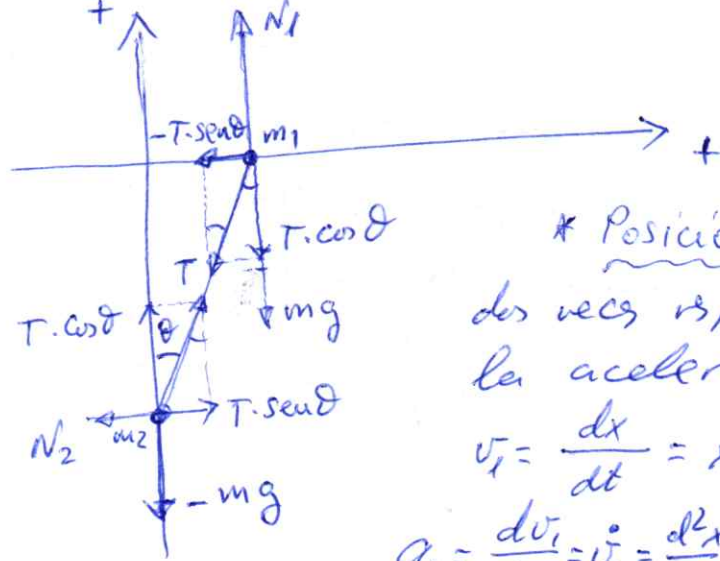 +
N1
-T·senθ
m1
+
T·cosθ
T
mg
T·cosθ
θ
T·senθ
N2
m2
-mg
* Posició
dos veces
la aceler
v1 = dx/dt =
= dv1/dt = v̇ = d²x